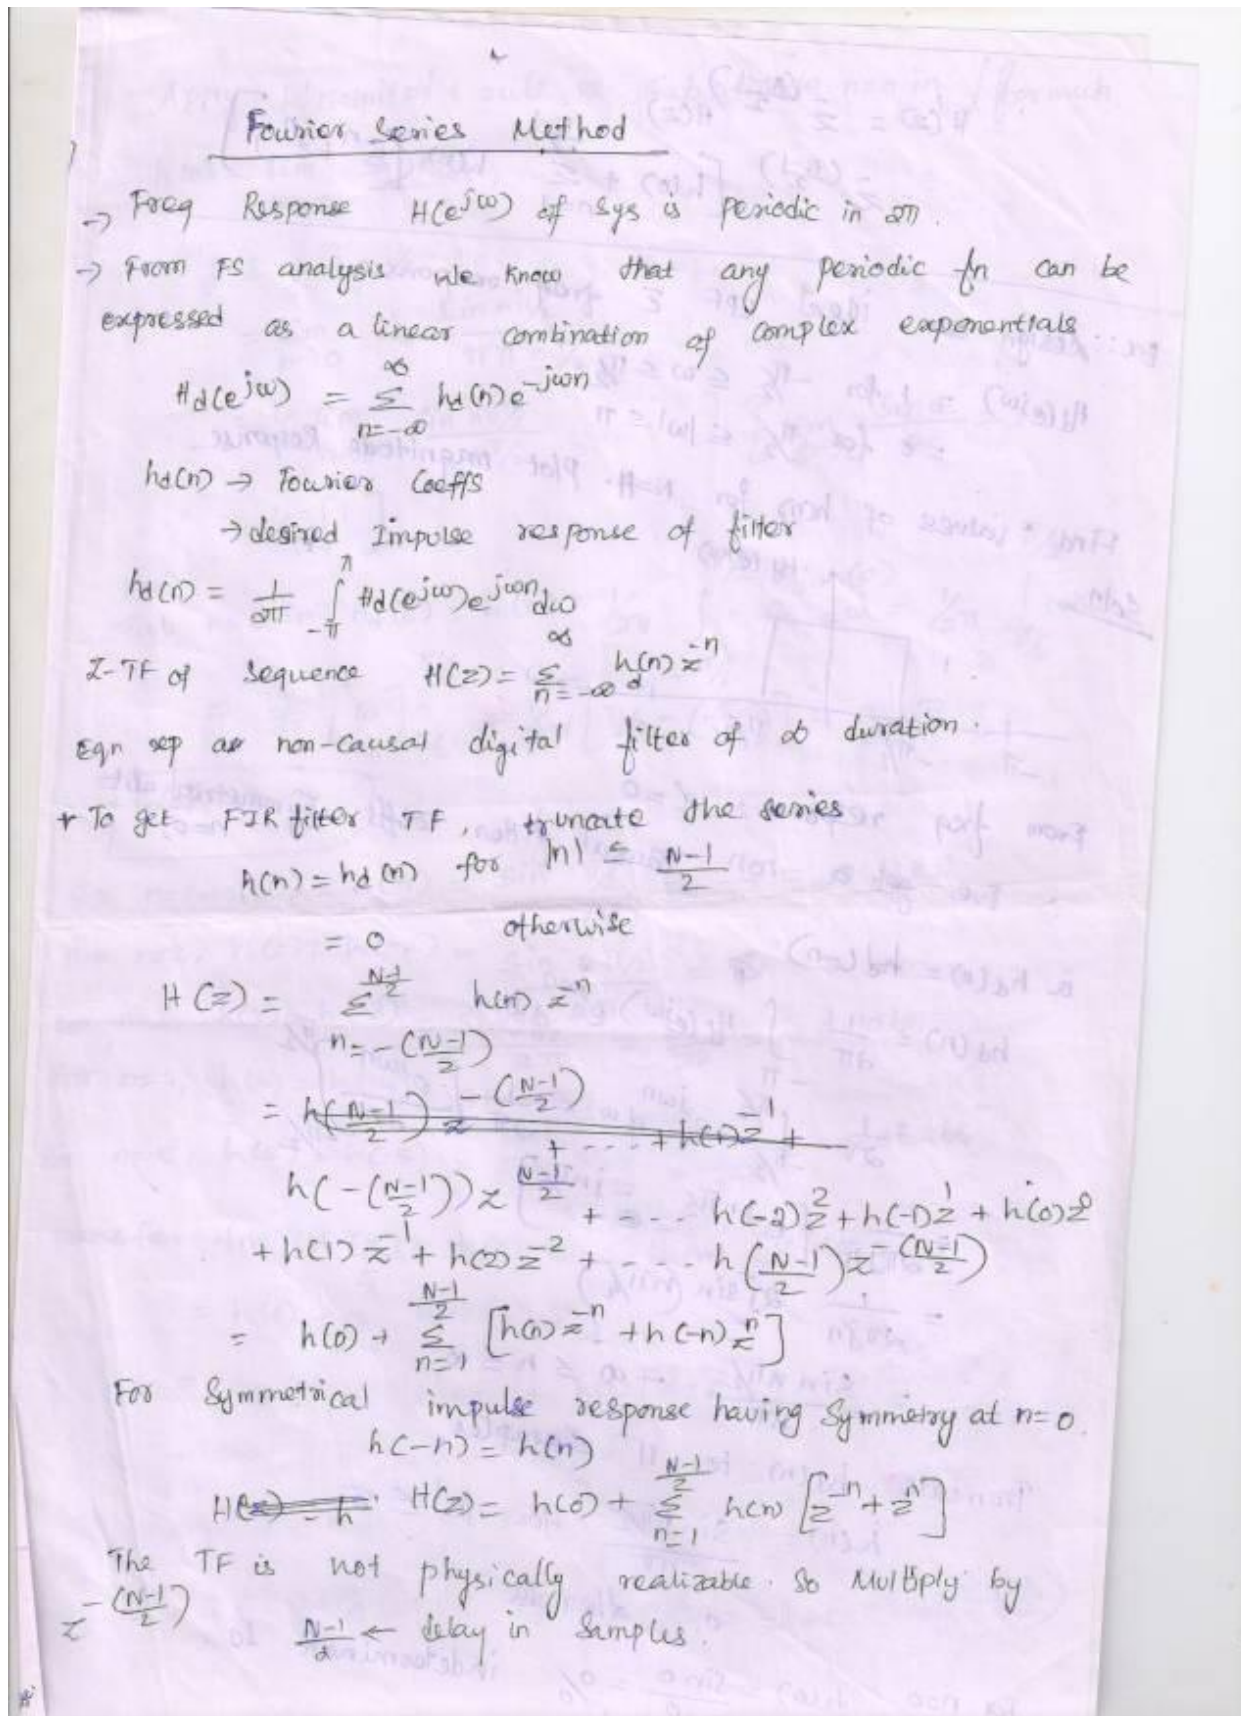 Fourier Series Method
→ Freq Response H(e^jω) of sys is periodic in 2π.
→ From FS analysis we know that any periodic fn can be
expressed as a linear combination of complex exponentials
Hd(e^jω) = Σ_{n=-∞}^{∞} hd(n) e^-jωn
hd(n) → Fourier Coeffs
→ desired Impulse response of filter
hd(n) = 1/2π ∫_{-π}^{π} Hd(e^jω) e^jωn dω
Z-TF of Sequence H(z) = Σ_{n=-∞}^{∞} hd(n) z^-n
Eqn rep a non-causal digital filter of ∞ duration.
* To get FIR filter TF, truncate the series
h(n) = hd(n) for |n| ≤ (N-1)/2
= 0 otherwise
H(z) = Σ_{n=-(N-1)/2}^{(N-1)/2} h(n) z^-n
= h((N-1)/2) z^-((N-1)/2) + ---- + h(1) z^-1 +
h(-((N-1)/2)) z^((N-1)/2) + ---- h(-2) z^2 + h(-1) z^1 + h(0) z^0
+ h(1) z^-1 + h(2) z^-2 + ---- h((N-1)/2) z^-((N-1)/2)
= h(0) + Σ_{n=1}^{(N-1)/2} [h(n) z^-n + h(-n) z^n]
For Symmetrical impulse response having Symmetry at n=0.
h(-n) = h(n)
H(z) = h H(z) = h(0) + Σ_{n=1}^{(N-1)/2} h(n) [z^-n + z^n]
The TF is not physically realizable. So Multiply by
z^-((N-1)/2) (N-1)/2 ← delay in Samples.